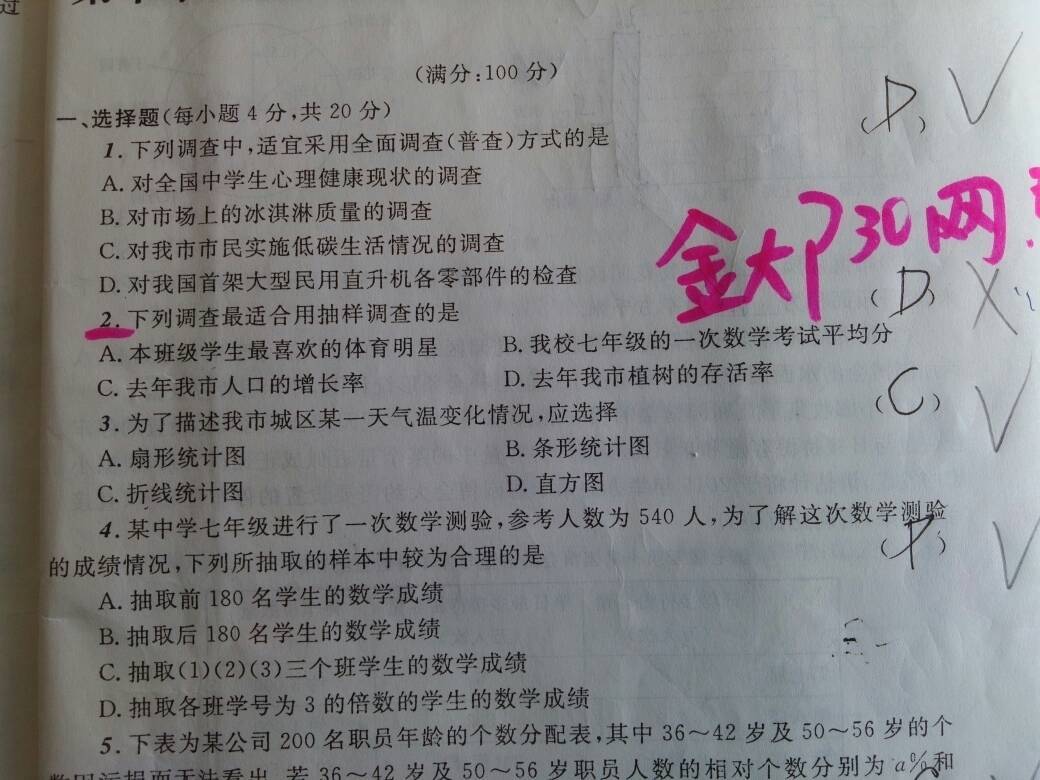 过
(满分:100 分)
一、选择题(每小题 4 分,共 20 分)
1. 下列调查中,适宜采用全面调查(普查)方式的是 (D)
A. 对全国中学生心理健康现状的调查
B. 对市场上的冰淇淋质量的调查
C. 对我市市民实施低碳生活情况的调查
D. 对我国首架大型民用直升机各零部件的检查
30网
2. 下列调查最适合用抽样调查的是 (D)
A. 本班级学生最喜欢的体育明星 B. 我校七年级的一次数学考试平均分
C. 去年我市人口的增长率 D. 去年我市植树的存活率
3. 为了描述我市城区某一天气温变化情况,应选择 (C)
A. 扇形统计图 B. 条形统计图
C. 折线统计图 D. 直方图
4. 某中学七年级进行了一次数学测验,参考人数为 540 人,为了解这次数学测验
的成绩情况,下列所抽取的样本中较为合理的是 (D)
A. 抽取前 180 名学生的数学成绩
B. 抽取后 180 名学生的数学成绩
C. 抽取(1)(2)(3)三个班学生的数学成绩
D. 抽取各班学号为 3 的倍数的学生的数学成绩
5. 下表为某公司 200 名职员年龄的个数分配表,其中 36～42 岁及 50～56 岁的个
数因污损而无法看出.若 36～42 岁及 50～56 岁职员人数的相对个数分别为 a%和